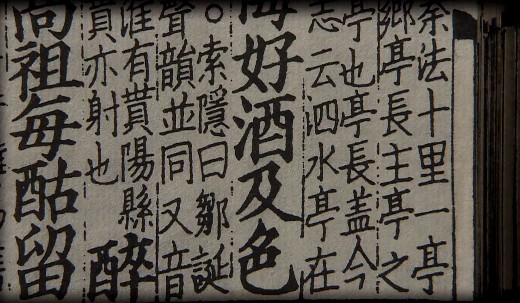 秦法十里一亭
鄉亭長主亭之
亭也亭長蓋今
志云泗水亭在
侮好酒及色
。索隱曰鄒誕
聲韻並同又音
淮有貰陽縣
貰亦射也
醉
高祖每酤留